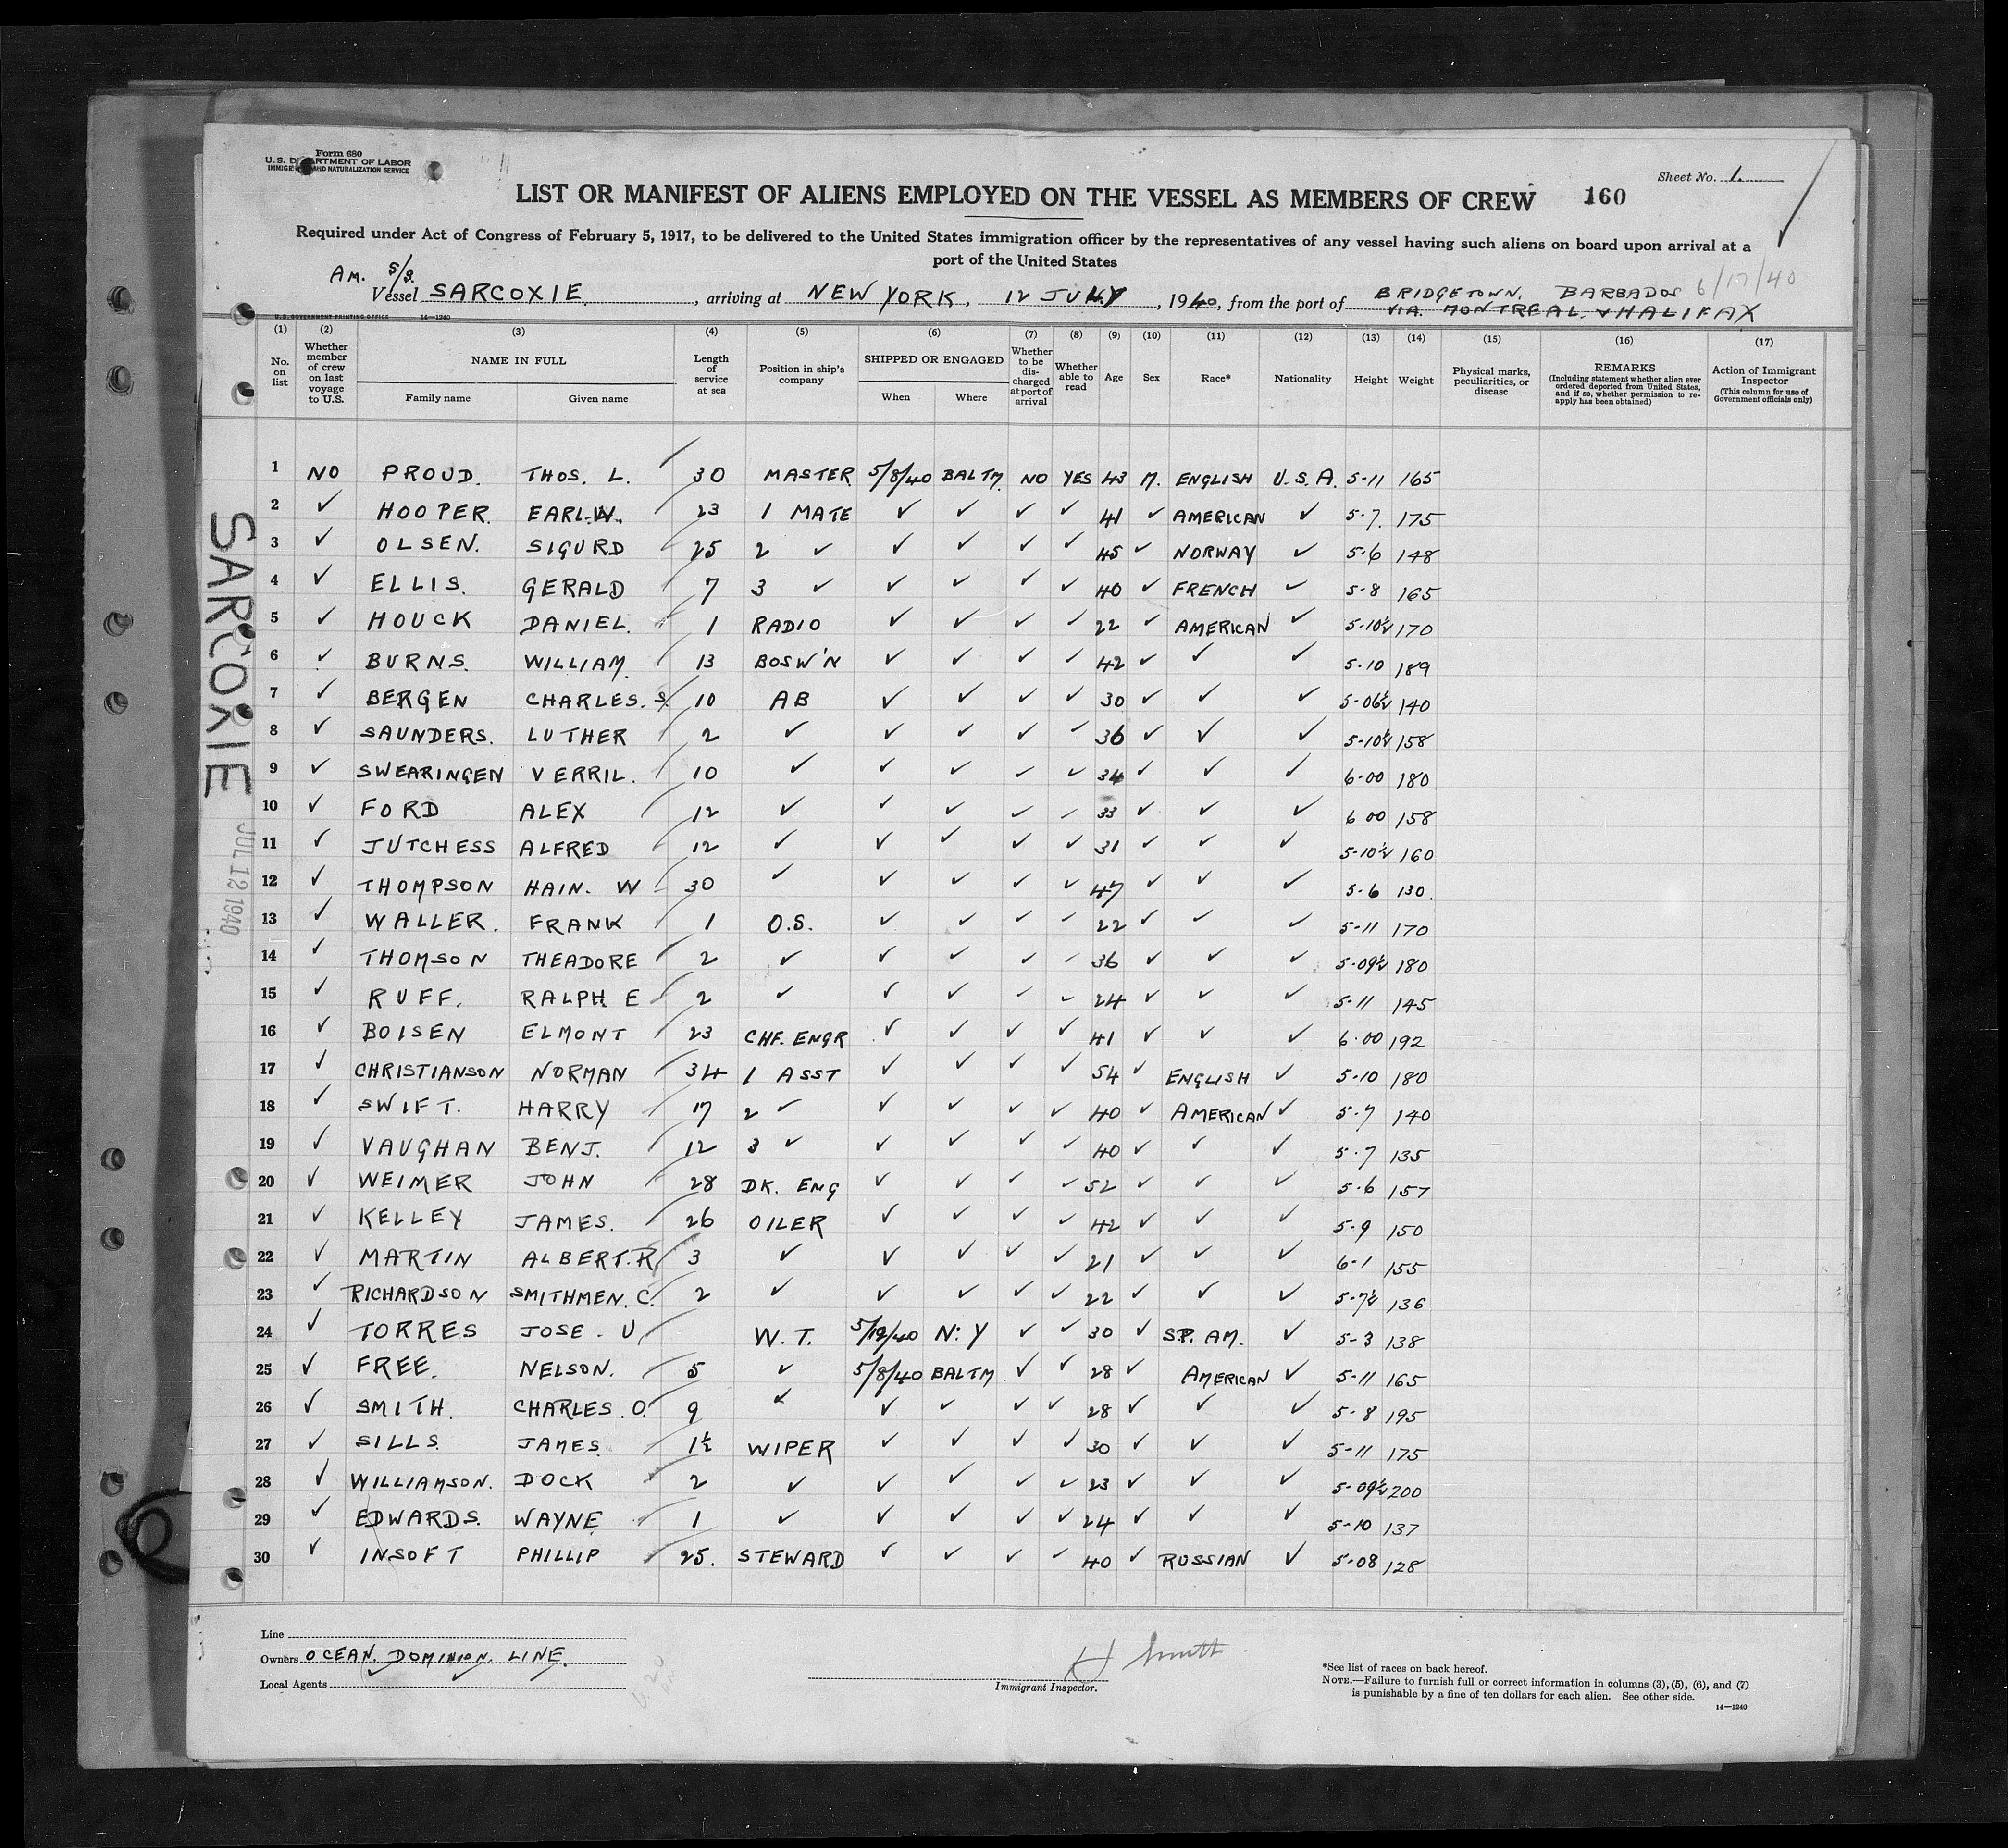 Form 680
U.S. DEPARTMENT OF LABOR
IMMIGRATION AND NATURALIZATION SERVICE
Sheet No. 1.
LIST OR MANIFEST OF ALIENS EMPLOYED ON THE VESSEL AS MEMBERS OF CREW 160
Required under Act of Congress of February 5, 1917, to be delivered to the United States immigration officer by the representatives of any vessel having such aliens on board upon arrival at a
port of the United States
Am. S/S.
Vessel SARCOXIE, arriving at NEW YORK, 12 JULY, 1940, from the port of BRIDGETOWN, BARBADOS 6/17/40
VIA. MONTREAL & HALIFAX
U.S. GOVERNMENT PRINTING OFFICE 14—1240
(1) (2) (3) (4) (5) (6) (7) (8) (9) (10) (11) (12) (13) (14) (15) (16) (17)
No. on list
Whether member of crew on last voyage to U.S.
NAME IN FULL
Family name Given name
Length of service at sea
Position in ship's company
SHIPPED OR ENGAGED
When Where
Whether to be discharged at port of arrival
Whether able to read
Age
Sex
Race*
Nationality
Height
Weight
Physical marks, peculiarities, or disease
REMARKS
(Including statement whether alien ever ordered deported from United States, and if so, whether permission to reapply has been obtained)
Action of Immigrant Inspector
(This column for use of Government officials only)
1 NO PROUD. THOS. L. 30 MASTER 5/8/40 BALTM. NO YES 43 M. ENGLISH U.S.A. 5-11 165
2 ✓ HOOPER. EARL.W. 23 1 MATE ✓ ✓ ✓ ✓ 41 ✓ AMERICAN ✓ 5-7. 175
3 ✓ OLSEN. SIGURD 25 2 ✓ ✓ ✓ ✓ ✓ 45 ✓ NORWAY ✓ 5-6 148
4 ✓ ELLIS. GERALD 7 3 ✓ ✓ ✓ ✓ ✓ 40 ✓ FRENCH ✓ 5-8 165
5 ✓ HOUCK DANIEL. 1 RADIO ✓ ✓ ✓ ✓ 22 ✓ AMERICAN ✓ 5-10½ 170
6 ✓ BURNS. WILLIAM. 13 BOSW'N ✓ ✓ ✓ ✓ 42 ✓ ✓ ✓ 5-10 189
7 ✓ BERGEN CHARLES. S. 10 AB ✓ ✓ ✓ ✓ 30 ✓ ✓ ✓ 5-06½ 140
8 ✓ SAUNDERS. LUTHER 2 ✓ ✓ ✓ ✓ ✓ 36 ✓ ✓ ✓ 5-10½ 158
9 ✓ SWEARINGEN VERRIL. 10 ✓ ✓ ✓ ✓ ✓ 34 ✓ ✓ ✓ 6-00 180
10 ✓ FORD ALEX 12 ✓ ✓ ✓ ✓ ✓ 33 ✓ ✓ ✓ 6 00 158
11 ✓ JUTCHESS ALFRED 12 ✓ ✓ ✓ ✓ ✓ 31 ✓ ✓ ✓ 5-10½ 160
12 ✓ THOMPSON HAIN. W 30 ✓ ✓ ✓ ✓ ✓ 47 ✓ ✓ ✓ 5-6 130.
13 ✓ WALLER. FRANK 1 O.S. ✓ ✓ ✓ ✓ 22 ✓ ✓ ✓ 5-11 170
14 ✓ THOMSON THEADORE 2 ✓ ✓ ✓ ✓ ✓ 36 ✓ ✓ ✓ 5-09½ 180
15 ✓ RUFF. RALPH E 2 ✓ ✓ ✓ ✓ ✓ 24 ✓ ✓ ✓ 5-11 145
16 ✓ BOISEN ELMONT 23 CHF. ENGR ✓ ✓ ✓ ✓ 41 ✓ ✓ ✓ 6-00 192
17 ✓ CHRISTIANSON NORMAN 34 1 ASST ✓ ✓ ✓ ✓ 54 ✓ ENGLISH ✓ 5-10 180
18 ✓ SWIFT. HARRY 17 2 ✓ ✓ ✓ ✓ ✓ 40 ✓ AMERICAN ✓ 5-7 140
19 ✓ VAUGHAN BENJ. 12 3 ✓ ✓ ✓ ✓ ✓ 40 ✓ ✓ ✓ 5-7 135
20 ✓ WEIMER JOHN 28 DK. ENG ✓ ✓ ✓ ✓ 52 ✓ ✓ ✓ 5-6 157
21 ✓ KELLEY JAMES. 26 OILER ✓ ✓ ✓ ✓ 42 ✓ ✓ ✓ 5-9 150
22 ✓ MARTIN ALBERT.R 3 ✓ ✓ ✓ ✓ ✓ 21 ✓ ✓ ✓ 6-1 155
23 ✓ RICHARDSON SMITHMEN. C. 2 ✓ ✓ ✓ ✓ ✓ 22 ✓ ✓ ✓ 5-7½ 136
24 ✓ TORRES JOSE. U W.T. 5/12/40 N.Y ✓ ✓ 30 ✓ SP. AM. ✓ 5-3 138
25 ✓ FREE. NELSON. 5 ✓ 5/8/40 BALTM. ✓ ✓ 28 ✓ AMERICAN ✓ 5-11 165
26 ✓ SMITH. CHARLES. O. 9 ✓ ✓ ✓ ✓ ✓ 28 ✓ ✓ ✓ 5-8 195
27 ✓ SILLS. JAMES. 1½ WIPER ✓ ✓ ✓ ✓ 30 ✓ ✓ ✓ 5-11 175
28 ✓ WILLIAMSON. DOCK 2 ✓ ✓ ✓ ✓ ✓ 23 ✓ ✓ ✓ 5-09½ 200
29 ✓ EDWARDS. WAYNE 1 ✓ ✓ ✓ ✓ ✓ 24 ✓ ✓ ✓ 5-10 137
30 ✓ INSOFT PHILLIP 25. STEWARD ✓ ✓ ✓ ✓ 40 ✓ RUSSIAN ✓ 5-08 128
SARCOXIE
JUL 12 1940
Line
Owners OCEAN. DOMINION. LINE.
Local Agents
H Smith
Immigrant Inspector.
*See list of races on back hereof.
NOTE.—Failure to furnish full or correct information in columns (3), (5), (6), and (7)
is punishable by a fine of ten dollars for each alien. See other side.
14—1240